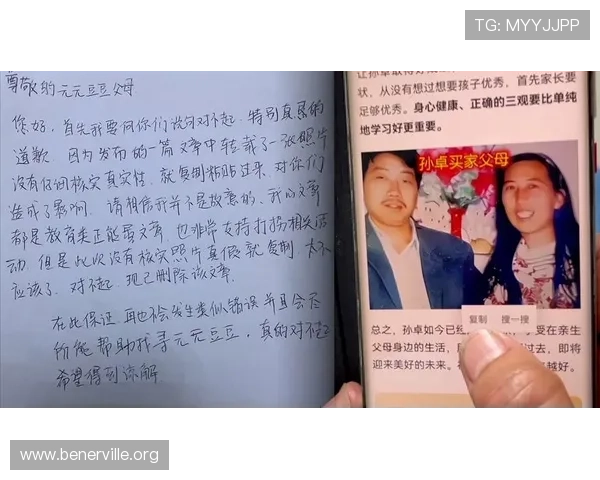 TG: MYYJJPP
尊敬的元元豆豆父母
您好,首先我要向你们说句对不起,特别真恳的
道歉 因为发布的一篇文章中转载了一张照片
没有仔细核实真实性,就复制粘贴过来,对你们
造成了影响,请相信我并不是故意的,我的文章
都是教育类正能量文章,也非常支持打拐相关活
动,但是此次没有核实照片真假就复制,太不
应该了,对不起,现已删除该文章,
在此保证,再也不会发生类似错误并且会尽
所能帮助找寻元元豆豆,真的对不起
希望得到谅解
让孙卓取得好成
状,从没有想过想要孩子优秀,首先家长要
足够优秀。身心健康、正确的三观要比单纯
地学习好更重要。
孙卓买家父母
复制 搜一搜
总之,孙卓如今已经 享受在亲生
父母身边的生活, 过去,即将
迎来美好的未来。 越好。
www.benerville.org